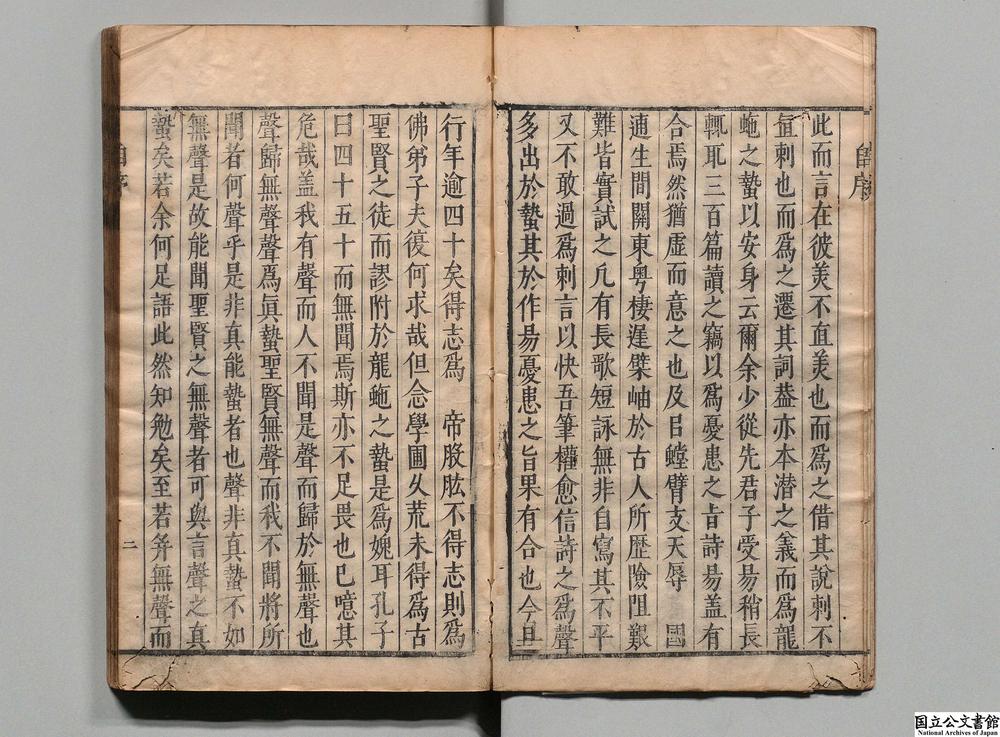 此而言在彼美不直美也而爲之借其說刺不
直刺也而爲之遷其詞葢亦本潛之義而爲龍
虵之蟄以安身云爾余少從先君子受易稍長
輒取三百篇讀之竊以爲憂患之旨詩易盖有
合焉然猶虛而意之也及㠯螳臂支天辱 國
逋生間關東粵棲遲檗岫於古人所歷險阻艱
難皆實試之凢有長歌短詠無非自寫其不平
又不敢過爲刺言以快吾筆權愈信詩之爲聲
多出於蟄其於作易憂患之旨果有合也今且
行年逾四十矣得志爲 帝股肱不得志則爲
佛弟子夫復何求哉但念學圃久荒未得爲古
聖賢之徒而謬附於龍虵之蟄是爲媿耳孔子
曰四十五十而無聞焉斯亦不足畏也已噫其
危哉盖我有聲而人不聞是聲而歸於無聲也
聲歸無聲聲爲眞蟄聖賢無聲而我不聞將所
聞者何聲乎是非真能蟄者也聲非真蟄不如
無聲是故能聞聖賢之無聲者可與言聲之真
蟄矣若余何足語此然知勉矣至若并無聲而
自序
二
国立公文書館
National Archives of Japan